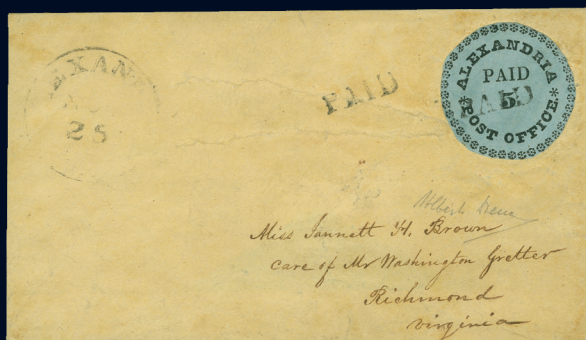 EXAN
25
PAID
ALEXANDRIA
PAID
PAID
5
POST OFFICE
Miss Jannett H. Brown
care of Mr Washington Gretter
Richmond
Virginia